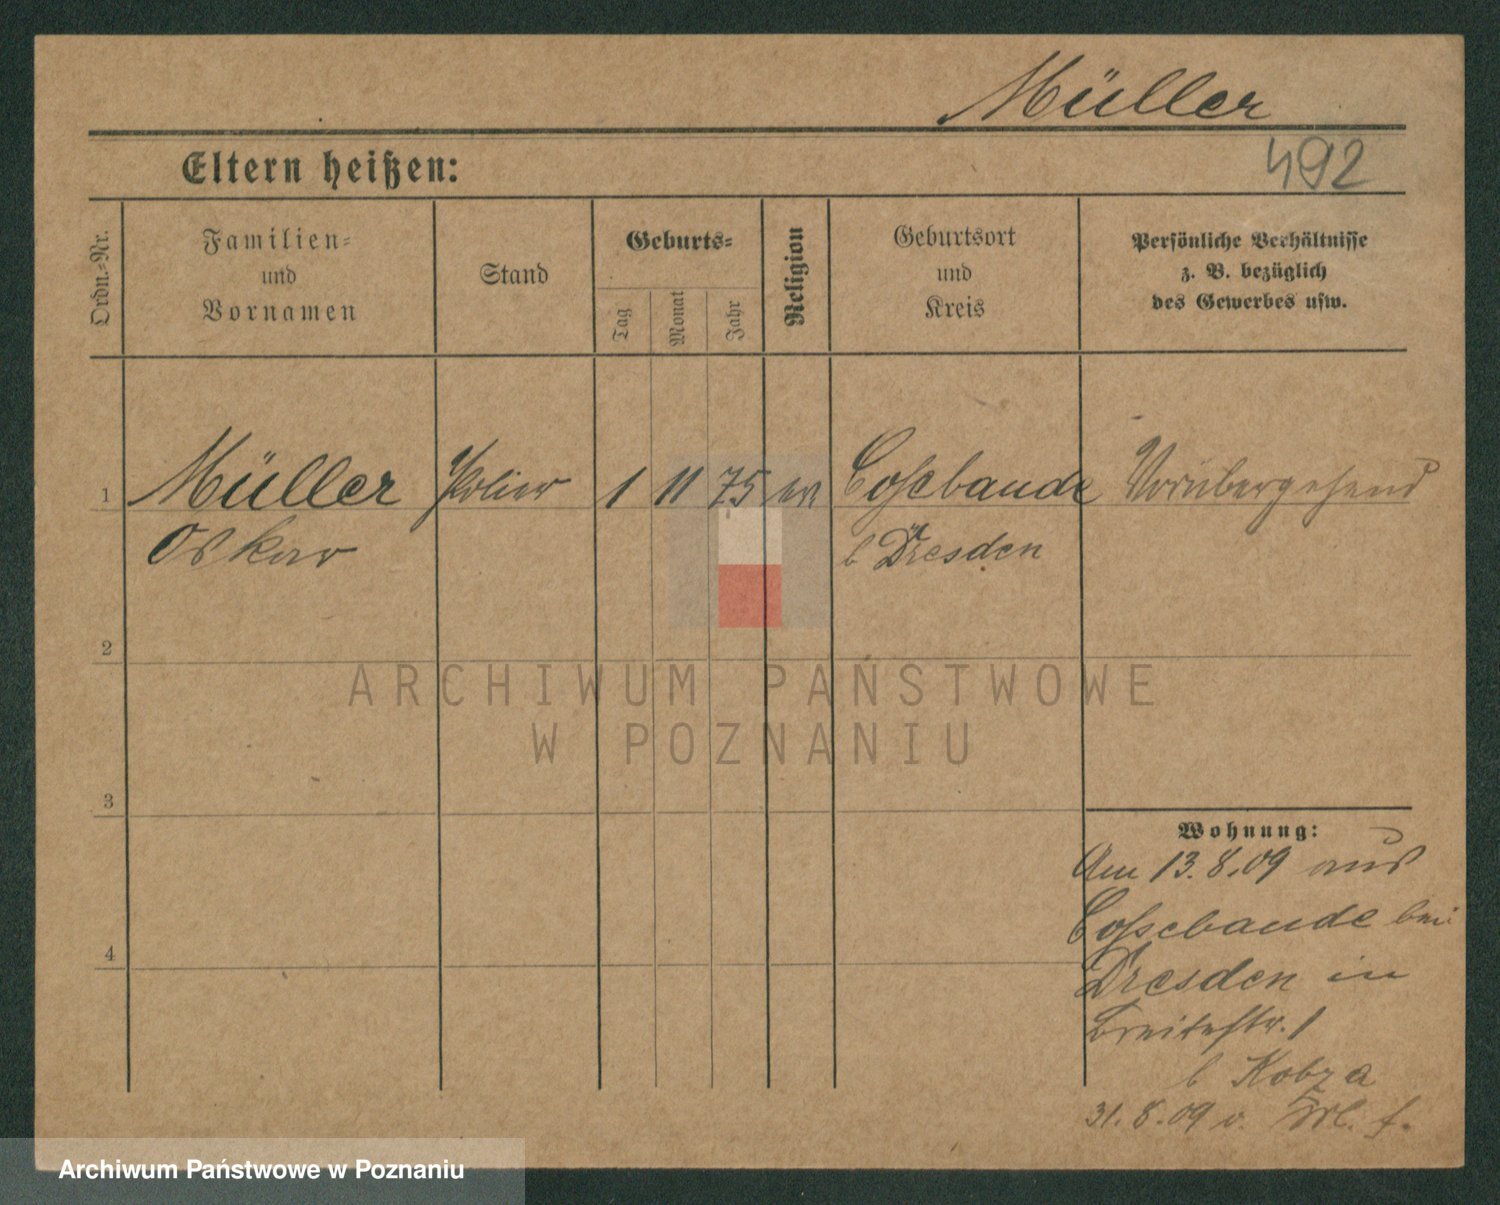 Müller
Eltern heißen:
492
Ordn.-Nr.
Familien-
und
Vornamen
Stand
Geburts-
Tag
Monat
Jahr
Religion
Geburtsort
und
Kreis
Persönliche Verhältnisse
z. B. bezüglich
des Gewerbes usw.
1 Müller Polier 1 11 75 ev Cossebaude Vorübergehend
Oskar b Dresden
2
ARCHIWUM PAŃSTWOWE
W POZNANIU
3
Wohnung:
Am 13.8.09 aus
Cossebaude bei
Dresden in
4
Breitestr. 1
b Kobza
31.8.09 v.
Archiwum Państwowe w Poznaniu